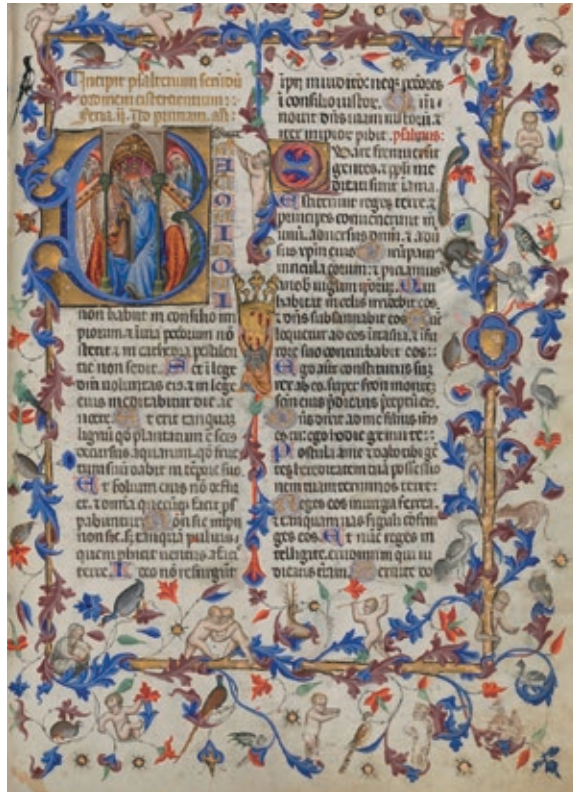 Incipit psalterium
ordinem cisterciencium :
non habiit in consilio im
piorum. et in via peccorum nō
stetit. et in cathedra pestilen
tie non sedit. Set in lege
dñi voluntas eiꝰ. et in lege
eius meditabitur die. ac
nocte. Et erit tanquaȝ
lignū qđ plantatum ē secꝰ
decursus. aquarum. qđ fruc
tum suū dabit in tēpore suo.
Et folium eius nō deflu
et. et omīa quecūqꝫ faciet ps
pabuntur. Non sic impii
non sic. sȝ tanquā puluis.
quem pbicit ventus. a facie
terre. Ideo nō resurgunt
ipii in iudicio: neqꝫ pctores
ī consilio iustor.
nouit dñs viam iustorū. et
iter impior pibit. psalmus:
Quare fremuerūt
gentes. et ppli me
ditati sunt inania.
Astiterunt reges terre. et
principes conuenerunt in
unū. aduersus dnm. et adu
sus xpm eius
vincula eorum: et piciamus
a nob iugum ipsorꝫ. Qui
habitat in celis irridebit eos
et dñs subsannabit eos
loquetur ad eos in ira sua. et ī fu
rore suo conturbabit eos :
Ego aūt constitutus suȝ
rex ab eo. super syon montē
scm eius pdicans pceptū eiꝰ.
Dñs dixit ad me filius mȝ
es tu: ego hodie genui te :
Postula a me et dabo tibi gē
tes hereditatem tuā et possessio
nem tuam terminos terre:
Reges eos in uirga ferrea.
et tanquam uas figuli cōfrin
ges eos. Et nūc reges in
telligite. erudimini qui iu
dicatis terram. Seruite do